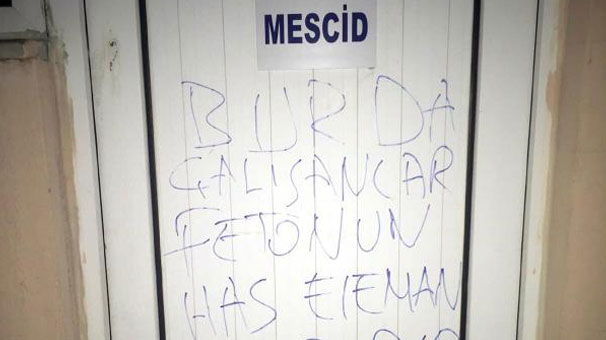 MESCİD
BURDA
ÇALIŞANLAR
FETONUN
HAS ELEMAN